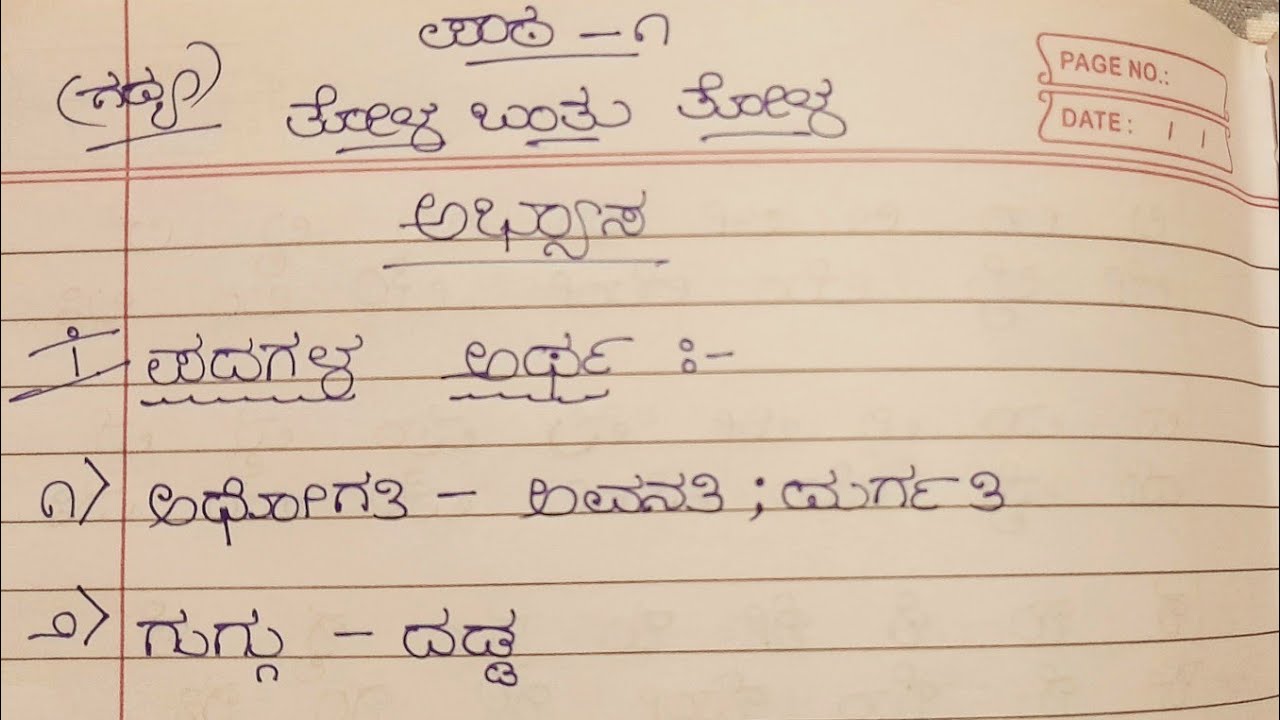 ಪಾಠ – ೧
(ಗದ್ಯ) ತೋಳ ಬಂತು ತೋಳ
PAGE NO.:
DATE: / /
ಅಭ್ಯಾಸ
I ಪದಗಳ ಅರ್ಥ :-
೧) ಅಧೋಗತಿ – ಅವನತಿ ; ದುರ್ಗತಿ
೨) ಗುಗ್ಗು – ದಡ್ಡ